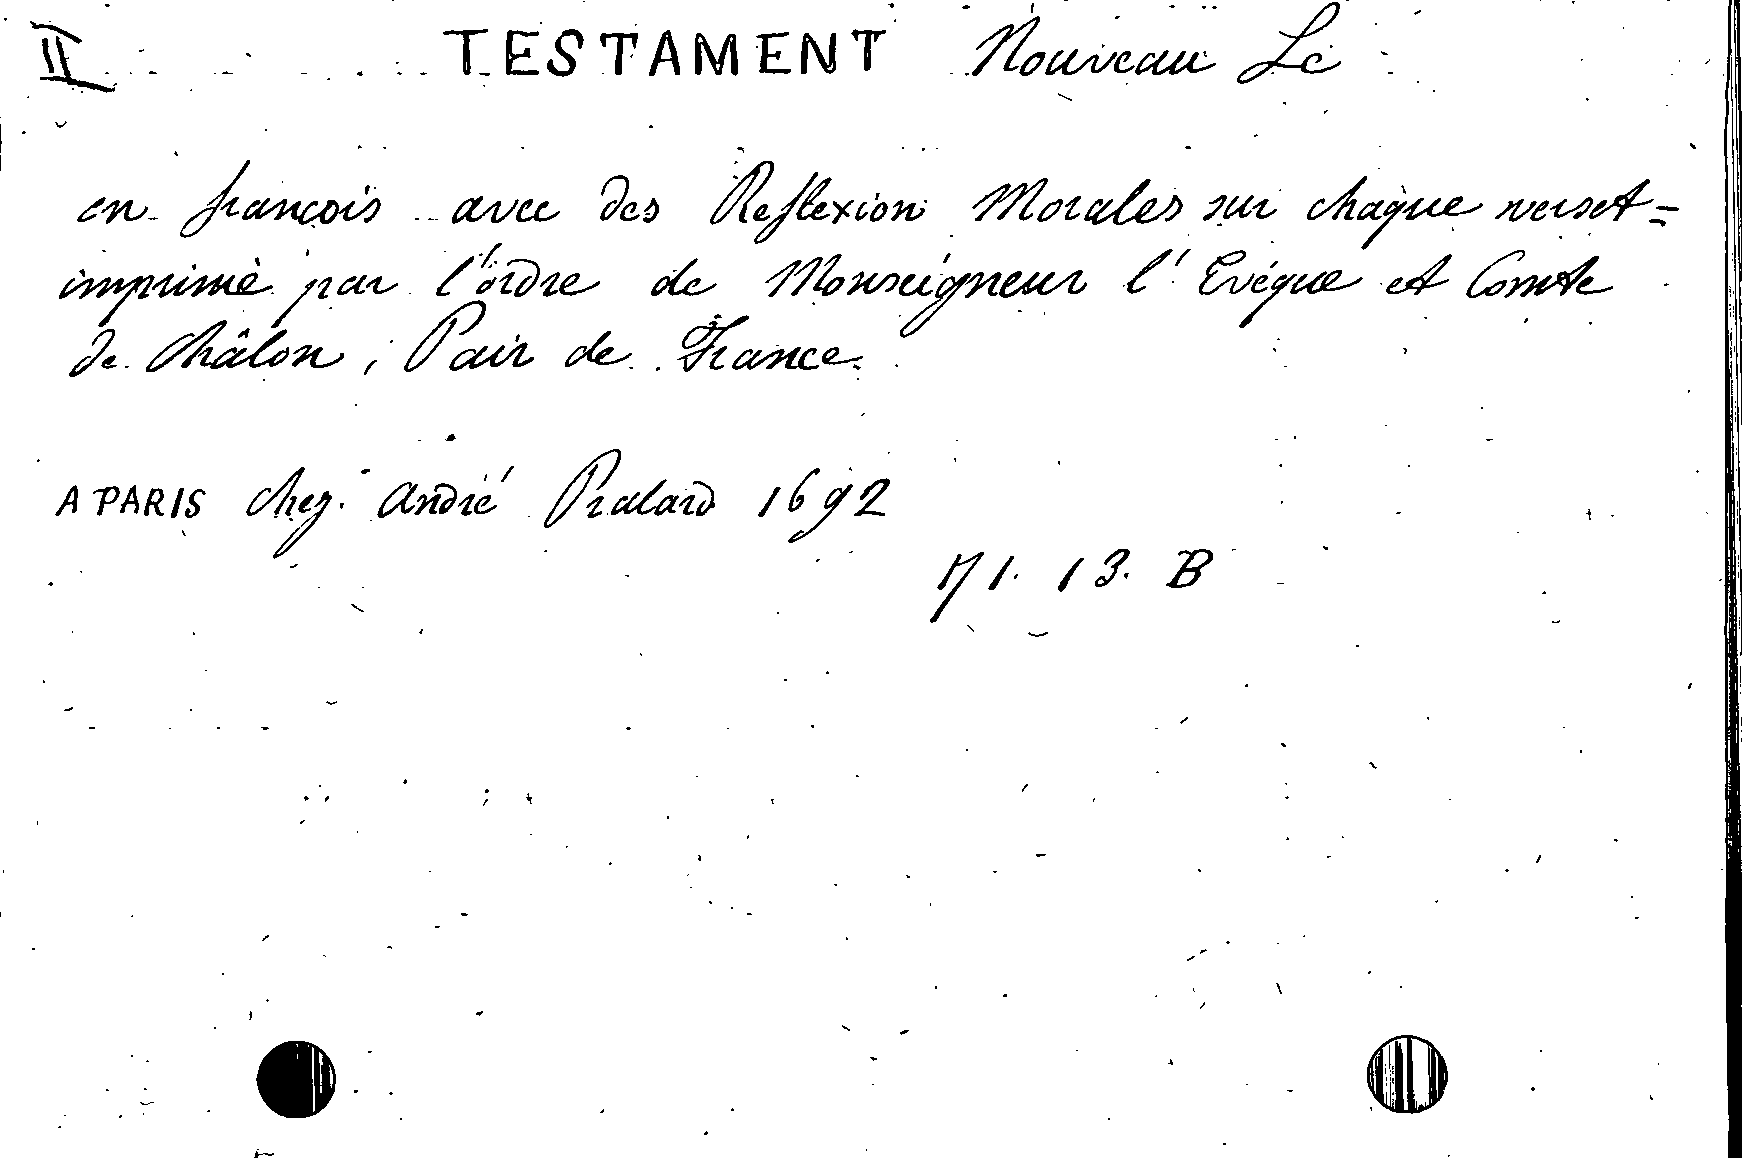 II TESTAMENT Nouveau Le
en françois avec des Reflexion Morales sur chaque verset =
imprimé par l'ordre de Monseigneur l'Evéque et Comte
de Châlon, Pair de France.
A PARIS chez André Pralard 1692
71. 13. B